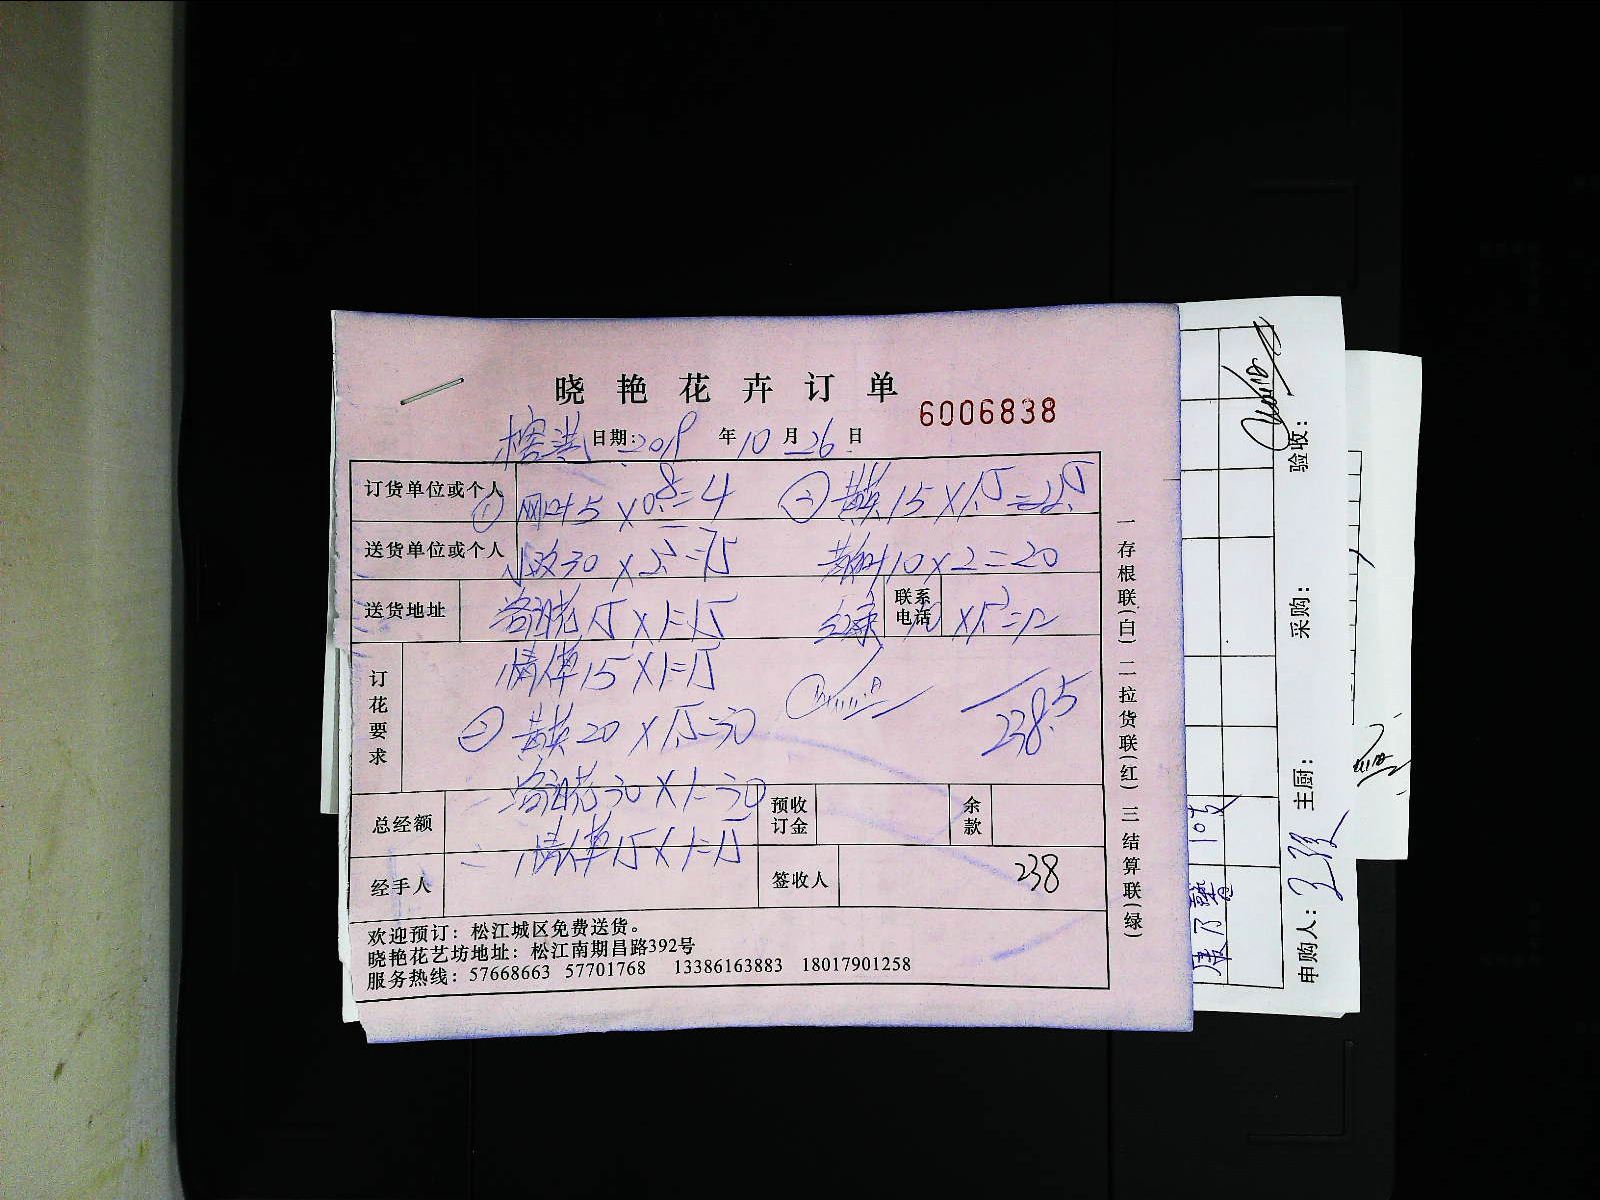 晓艳花卉订单
6006838
日期: 2019 年 10 月 26 日
订货单位或个人
① 网叶5 × 0.8 = 4
② 黄英 15 × 1.5 = 22.5
送货单位或个人
小玫30 × 2.5 = 75
黄and叶10 × 2 = 20
送货地址
洛神花 15 × 1 = 15
联系电话
10 × 1.2 = 12
订花要求
情人草15 × 1 = 15
238.5
② 黄英 20 × 1.5 = 30
洛神花 30 × 1 = 30
总经额
预收订金
余款
情人草 15 × 1 = 15
经手人
签收人
238
欢迎预订: 松江城区免费送货。
晓艳花艺坊地址: 松江南期昌路392号
服务热线: 57668663 57701768 13386163883 18017901258
一存根联(白) 二拉货联(红) 三结算联(绿)
验收:
采购:
主厨:
申购人: